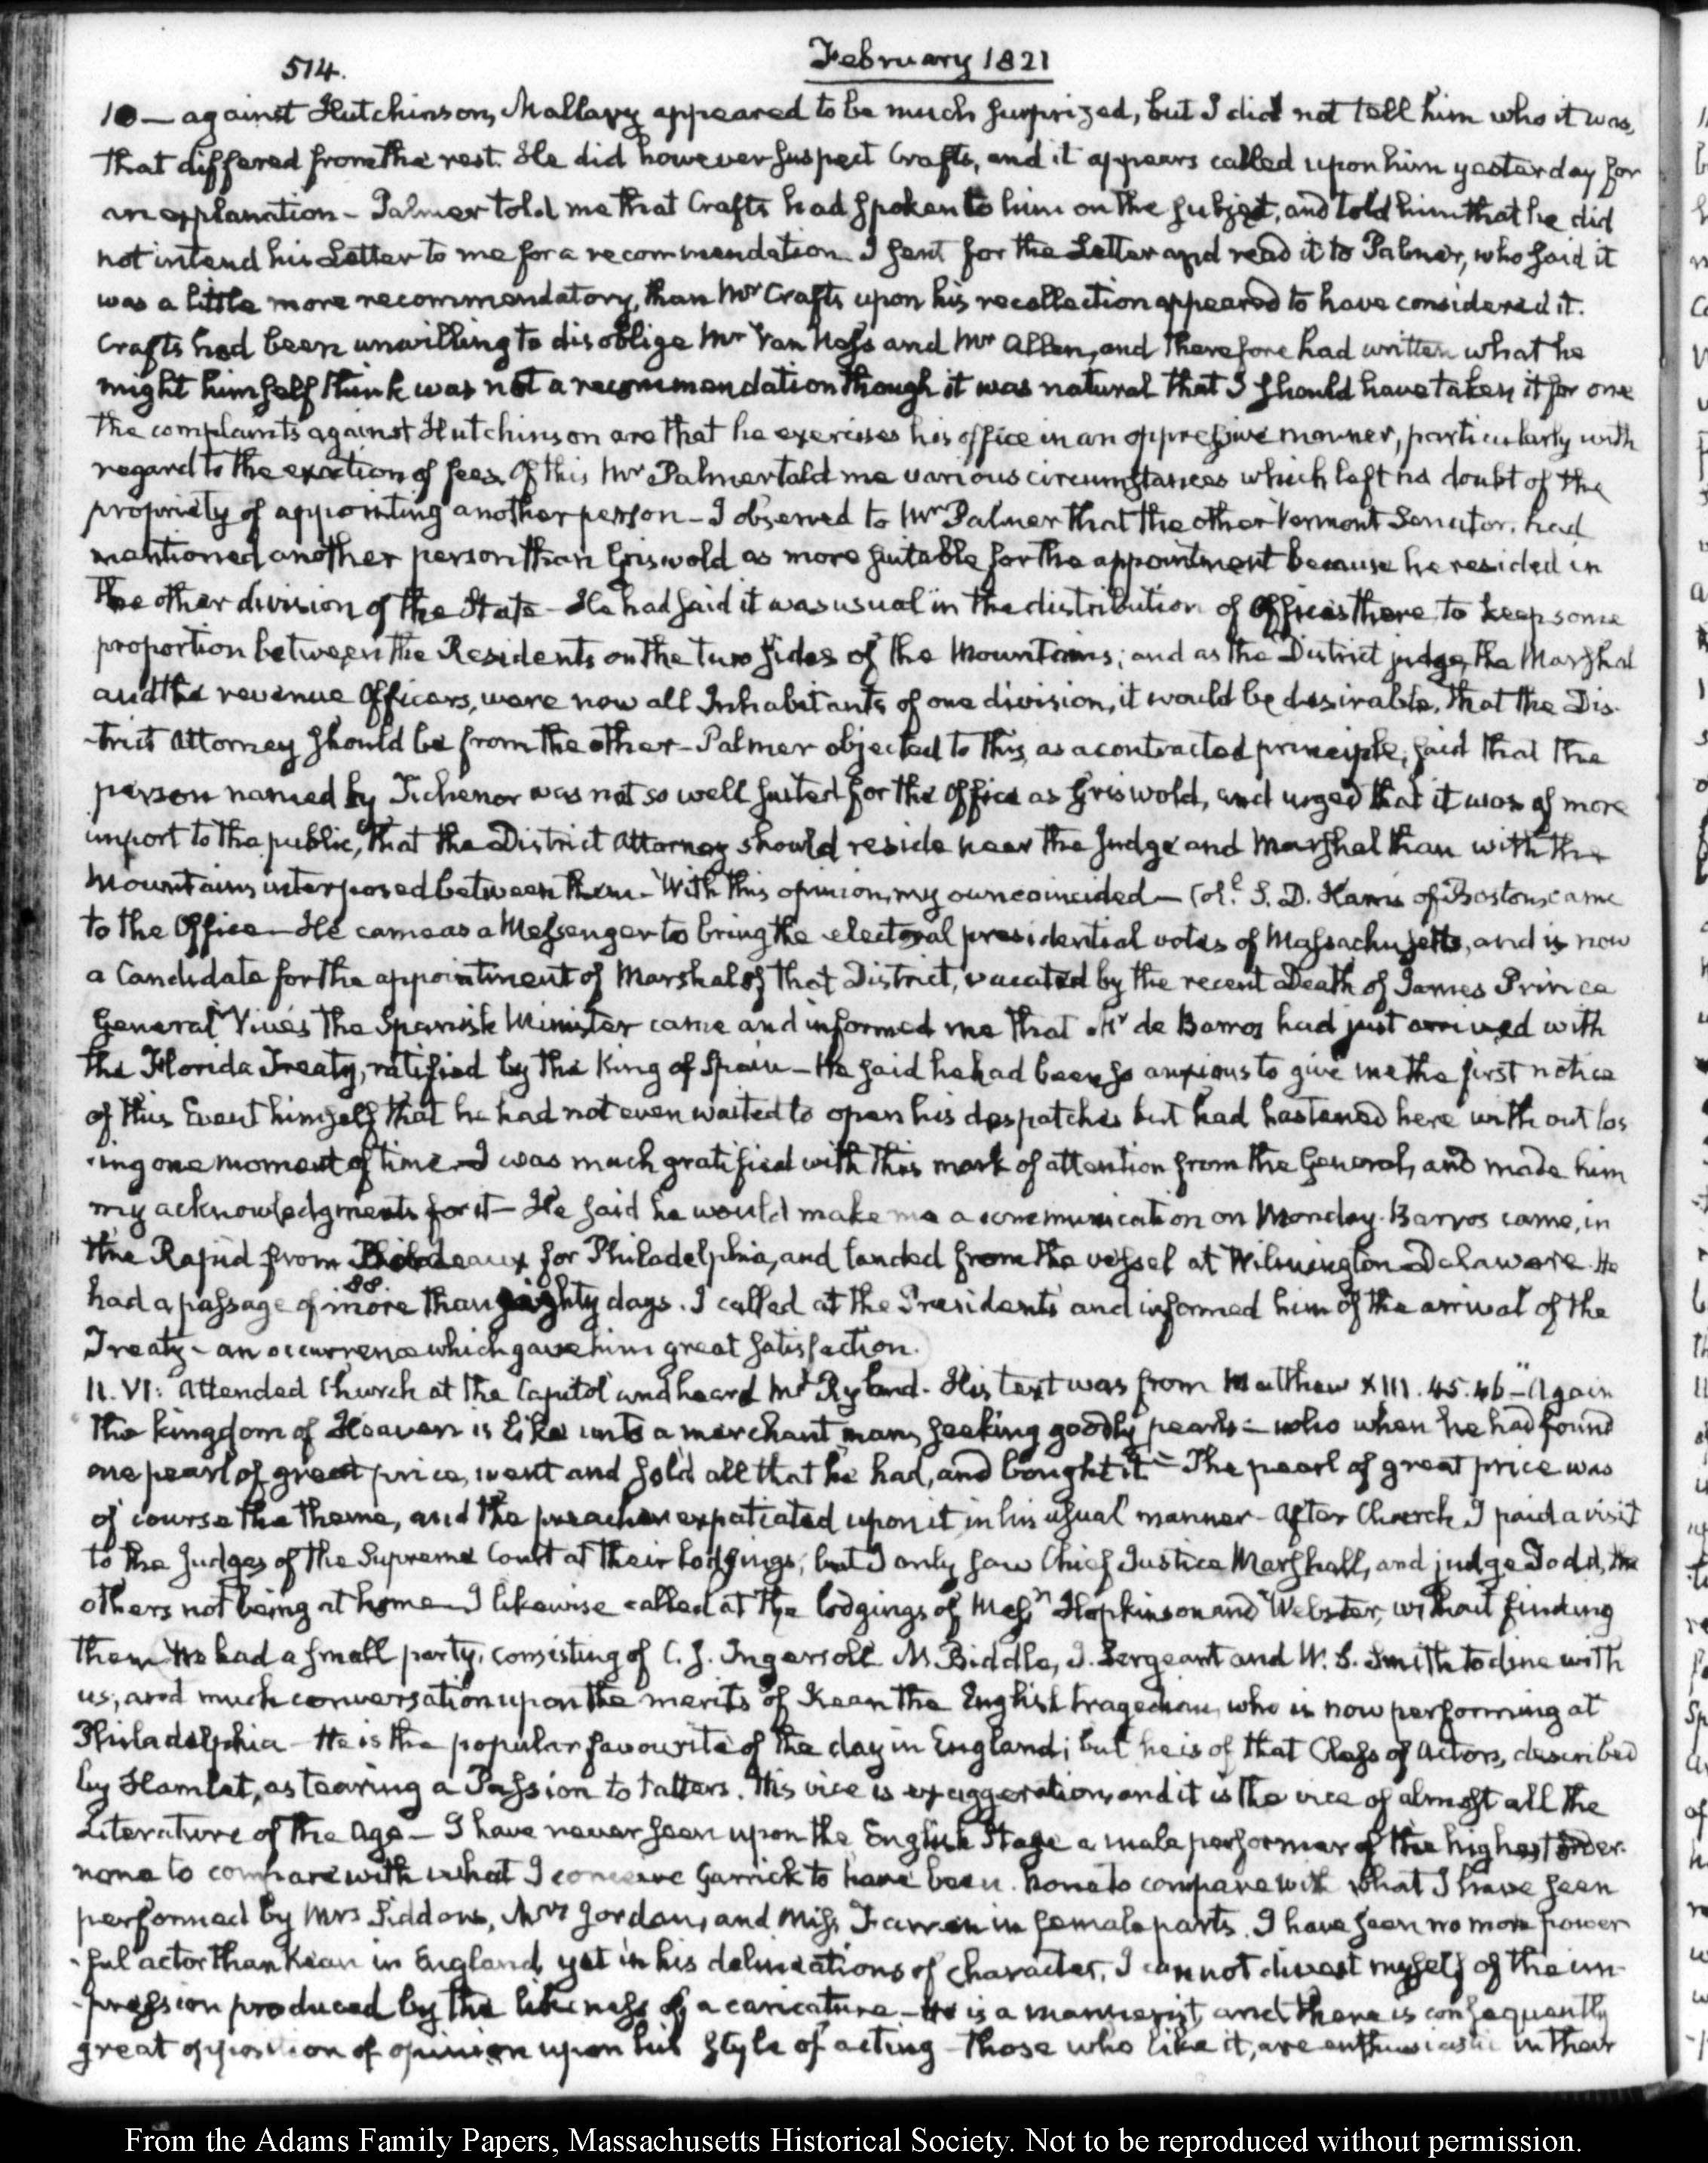 514.
February 1821
10 — against Hutchinson, Mallary appeared to be much surprized, but I did not tell him who it was,
that differed from the rest. He did however suspect Crafts, and it appears called upon him yesterday for
an explanation - Palmer told me that Crafts had spoken to him on the subject, and told him that he did
not intend his Letter to me for a recommendation. I sent for the Letter and read it to Palmer, who said it
was a little more recommendatory, than Mr Crafts upon his recollection appeared to have considered it.
Crafts had been unwilling to disoblige Mr Van Ness and Mr Allen, and therefore had written what he
might himself think was not a recommendation though it was natural that I should have taken it for one
The complaints against Hutchinson are that he exercises his office in an oppressive manner, particularly with
regard to the exaction of fees. Of this Mr Palmer told me various circumstances which left no doubt of the
propriety of appointing another person - I observed to Mr Palmer that the other Vermont Senator, had
mentioned another person than Griswold as more suitable for the appointment because he resided in
the other division of the State - He had said it was usual in the distribution of Offices there, to keep some
proportion between the Residents on the two sides of the Mountains; and as the District judge, the Marshal
and the revenue Officers, were now all Inhabitants of one division, it would be desirable, that the Dis-
-trict Attorney should be from the other - Palmer objected to this, as a contracted principle; said that the
person named by Tichenor was not so well suited for the Office as Griswold, and urged that it was of more
import to the public, that the District Attorney should reside near the Judge and Marshal than with the
Mountains interposed between them - With this opinion, my own coincided - Col. S. D. Harris of Boston, came
to the Office — He came as a Messenger to bring the electoral presidential votes of Massachusetts, and is now
a Candidate for the appointment of Marshal of that District, vacated by the recent Death of James Prince
General Vivés the Spanish Minister came and informed me that Mr de Barros had just arrived with
the Florida Treaty, ratified by the King of Spain - He said he had been so anxious to give me the first notice
of this Event himself that he had not even waited to open his despatches but had hastened here without los
-ing one moment of time - I was much gratified with this mark of attention from the General, and made him
my acknowledgments for it - He said he would make me a communication on Monday. Barros came, in
the Rapid from Bordeaux for Philadelphia, and landed from the vessel at Wilmington Delaware. He
had a passage of more than eighty days. I called at the Presidents and informed him of the arrival of the
88.
Treaty - an occurrence which gave him great satisfaction.
11. VI: Attended Church at the Capitol and heard Mr Ryland. His text was from Matthew XIII. 45. 46 - "Again
the kingdom of Heaven is like unto a merchant man, seeking goodly pearls: - who when he had found
one pearl of great price, went and sold all that he had, and bought it" - The pearl of great price was
of course the theme, and the preacher expatiated upon it, in his usual manner - After Church, I paid a visit
to the Judges of the Supreme Court at their lodgings; but I only saw Chief Justice Marshall, and judge Todd, the
others not being at home - I likewise called at the lodgings of Messrs Hopkinson and Webster, without finding
them - We had a small party, consisting of C. J. Ingersoll M. Biddle, J. Sergeant and W. S. Smith to dine with
us, and much conversation upon the merits of Kean the English tragedian, who is now performing at
Philadelphia - He is the popular favourite of the day in England; but he is of that Class of Actors, described
by Hamlet, as tearing a Passion to tatters. His vice is exaggeration, and it is the vice of almost all the
Literature of the Age - I have never seen upon the English Stage a male performer of the highest order.
none to compare with what I conceive Garrick to have been. none to compare with what I have seen
performed by Mrs Siddons, Mrs Jordan, and Miss Farren in female parts. I have seen no more power
-ful actor than Kean in England, yet in his delineations of character, I cannot divest myself of the im-
-pression produced by the likeness of a caricature - He is a mannerist, and there is consequently
great opposition of opinion upon his style of acting - those who like it, are enthusiastic in their
From the Adams Family Papers, Massachusetts Historical Society. Not to be reproduced without permission.